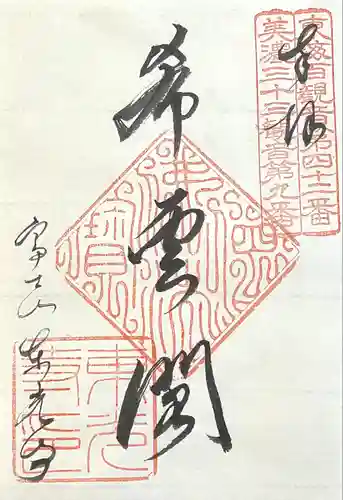 東海百観音第四十二番
美濃三十三観音第九番
奉拝
希雲閣
富士山
東光寺